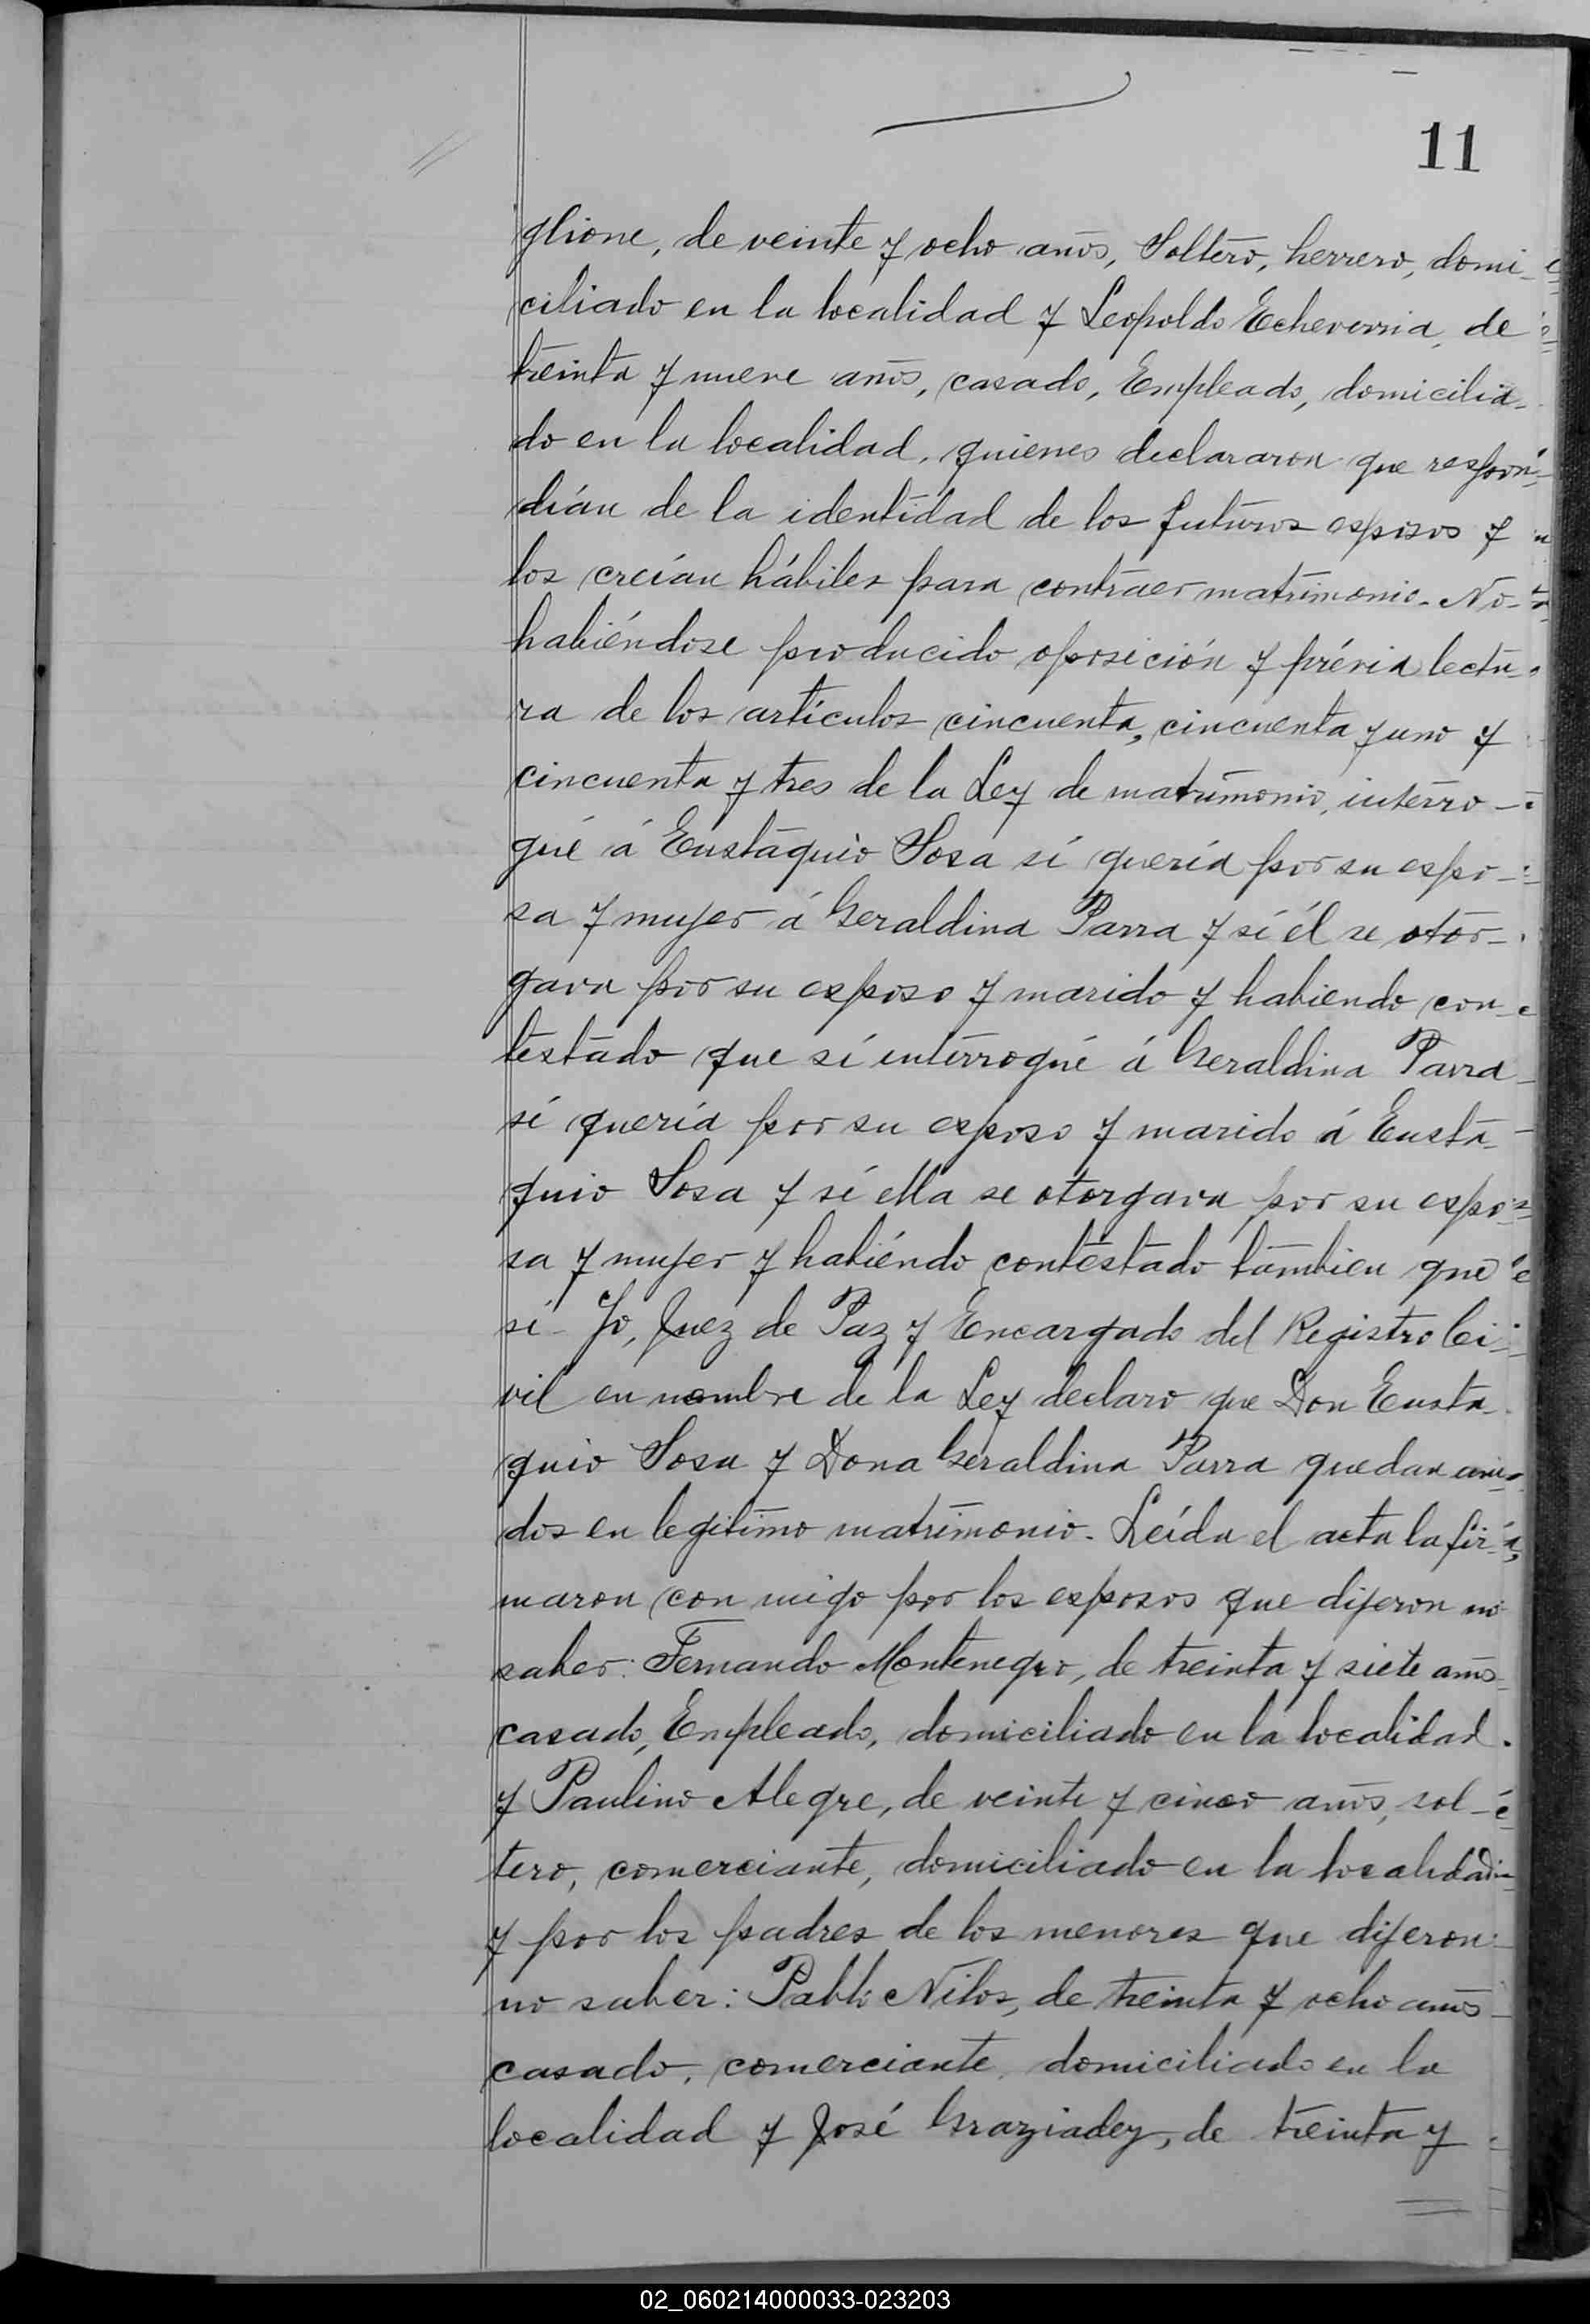 11
glione, de veinte y ocho años, Soltero, herrero, domi-
ciliado en la localidad y Leopoldo Echeverria, de
treinta y nueve años, casado, Empleado, domicilia-
do en la localidad, quienes declararon que respon-
dián de la identidad de los futuros esposos y
los creían hábiles para contraer matrimonio. No-
habiéndose producido oposición y prévia lectu-
ra de los artículos cincuenta, cincuenta y uno y
cincuenta y tres de la Ley de matrimonio, interro-
gué á Eustaquio Sosa sí quería por su espo-
sa y mujer á Geraldina Parra y sí él se otor-
gava por su esposo y marido y habiendo con-
testado que sí interrogué á Geraldina Parra
sí quería por su esposo y marido á Eusta-
quio Sosa y sí ella se otorgava por su espo-
sa y mujer y habiéndo contestado tambien que
sí- Yo, Juez de Paz y Encargado del Registro Ci-
vil en nombre de la Ley declaro que Don Eusta-
quio Sosa y Dona Geraldina Parra quedan uni-
dos en legitimo matrimonio. Leída el acta la fir-
maron con migo por los esposos que dijeron no
saber: Fernando Montenegro, de treinta y siete años
casado, Empleado, domiciliado en la localidad.
y Paulino Alegre, de veinte y cinco años, sol-
tero, comerciante, domiciliado en la localidad
y por los padres de los menores que dijeron
no saber: Pablo Nilos, de treinta y ocho años
casado, comerciante, domiciliado en la
localidad y José Graziadey, de treinta y
02_060214000033-023203